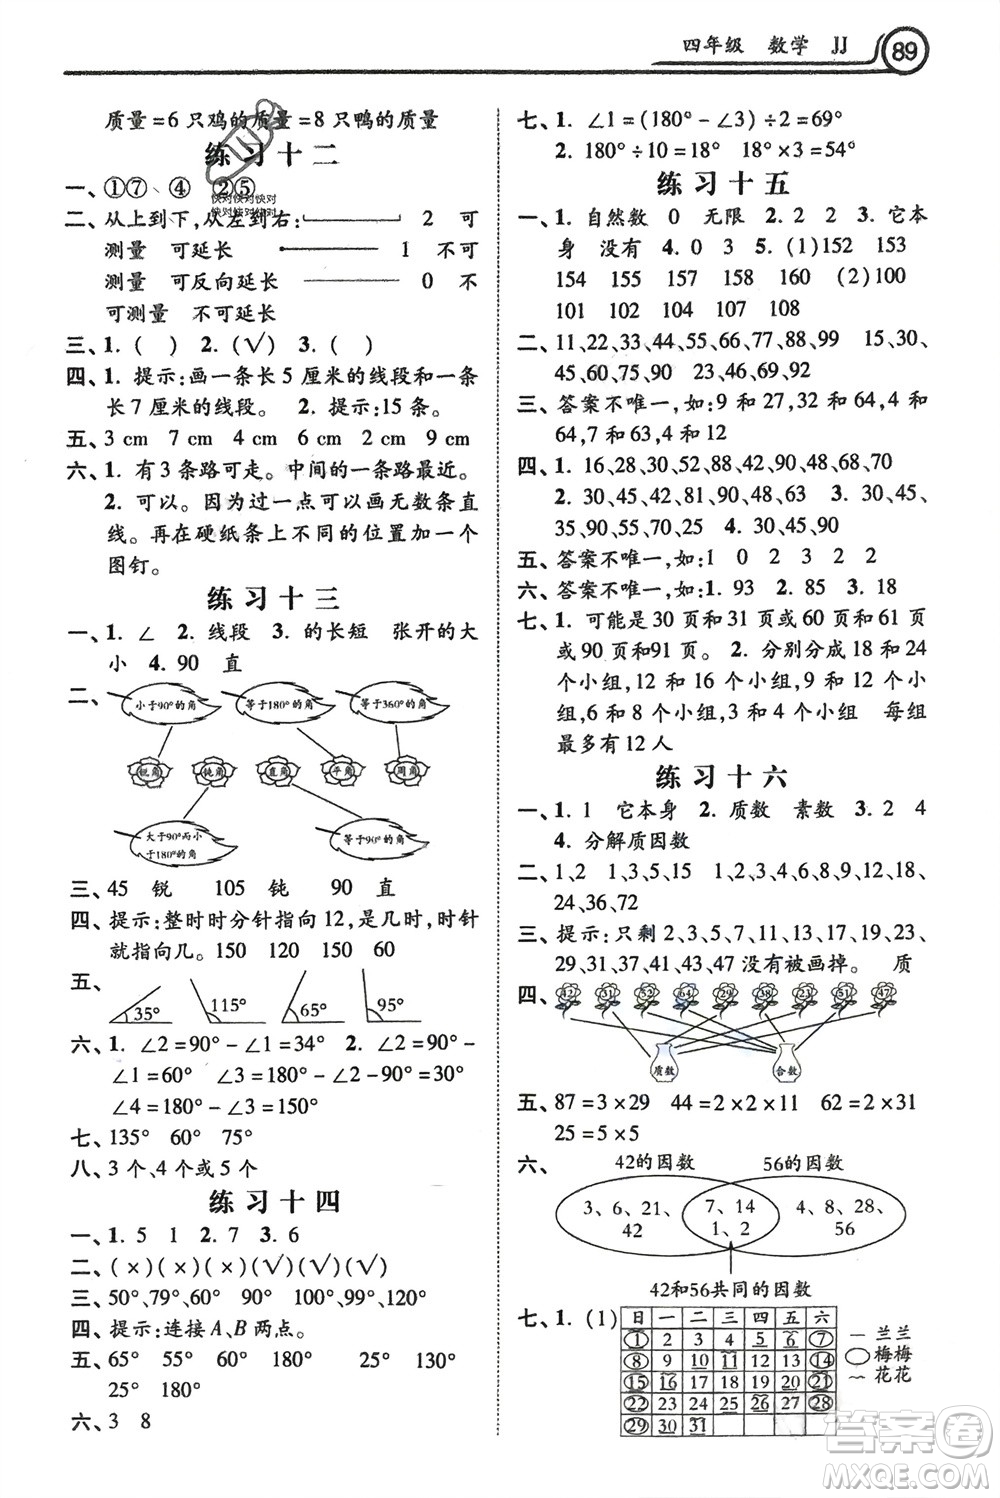 四年级 数学 JJ 89
质量=6 只鸡的质量=8 只鸭的质量
练习十二
一、①⑦ ④ ②⑤
快对快对快对
快对快对快对
二、从上到下,从左到右: 2 可
测量 可延长 1 不可
测量 可反向延长 0 不
可测量 不可延长
三、1. ( ) 2. (√) 3. ( )
四、1. 提示:画一条长 5 厘米的线段和一条
长 7 厘米的线段。 2. 提示:15 条。
五、3 cm 7 cm 4 cm 6 cm 2 cm 9 cm
六、1. 有 3 条路可走。中间的一条路最近。
2. 可以。因为过一点可以画无数条直
线。再在硬纸条上不同的位置加一个
图钉。
练习十三
一、1. ∠ 2. 线段 3. 的长短 张开的大
小 4. 90 直
二、
小于90°的角 等于180°的角 等于360°的角
锐角 钝角 直角 平角 周角
大于90°而小
于180°的角 等于90°的角
三、45 锐 105 钝 90 直
四、提示:整时时分针指向 12,是几时,时针
就指向几。150 120 150 60
五、
35° 115° 60° 95°
六、1. ∠2=90°-∠1=34° 2. ∠2=90°-
∠1=60° ∠3=180°-90°-∠2=30°
∠4=180°-∠3=150°
七、135° 60° 75°
八、3 个、4 个或 5 个
练习十四
一、1. 5 1 2. 7 3. 6
二、(×)(×)(×)(√)(√)(√)
三、50°、79°、87° 90° 101°、134°、142°
四、提示:连接 A、B 两点。
五、65° 55° 90° 180° 25° 130°
25° 180°
六、3 8
七、1. ∠1=(180°-∠3)÷2=69°
2. 180°÷10=18° 18°×3=54°
练习十五
一、1. 自然数 0 无限 2. 2 2 3. 它本
身 没有 4. 0 3 5. (1)152 153
154 155 156 157 160 (2)100
101 102 105 107 108
二、11、22、33、44、55、66、77、88、99
13、26、39、52 23、46、69、92
三、答案不唯一,如:9 和 27,32 和 64,4 和
64,7 和 35,4 和 12
四、1. 16、28、48、54、88、90、68、70
2. 30、45、42、81、90、54 3. 30、45、
35、90、55、70、25 4. 30、45、90
五、答案不唯一,如:1 0 2 3 2 2
六、答案不唯一,如:1. 93 2. 85 3. 18
七、1. 可能是 30 页和 31 页或 60 页和 61 页
或 90 页和91 页。 2. 分别分成 18 和 24
个小组,12 和 16 个小组,9 和 12 个小
组,6 和 8 个小组,3 和 4 个小组 每组
最多有 12 人
练习十六
一、1. 1 它本身 2. 质数 素数 3. 2 4
4. 分解质因数
二、1、2 1、2、3、4、6、8、9、12、18、
24、36、72
三、提示:只剩 2、3、5、7、11、13、17、19、23、
29、31、37、41、43、47 没有被画掉。 质
四、 42 31 52 64 29 38 2 51 47
质数 合数
五、87=3×29 44=2×2×11 62=2×31
25=5×5
六、 42的因数 56的因数
3、6、21、
42
7、14
1、2
4、8、28、
56
42和56共同的因数
七、1. (1)
日 一 二 三 四 五 六
1 2 3 4 5 6 7
8 9 10 11 12 13 14
15 16 17 18 19 20 21
22 23 24 25 26 27 28
29 30 31
— 兰兰
○梅梅
～ 花花
答案圈
MXQE.COM